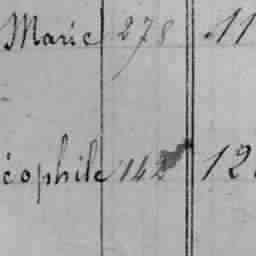 Marie 278 11
éophile 142 12